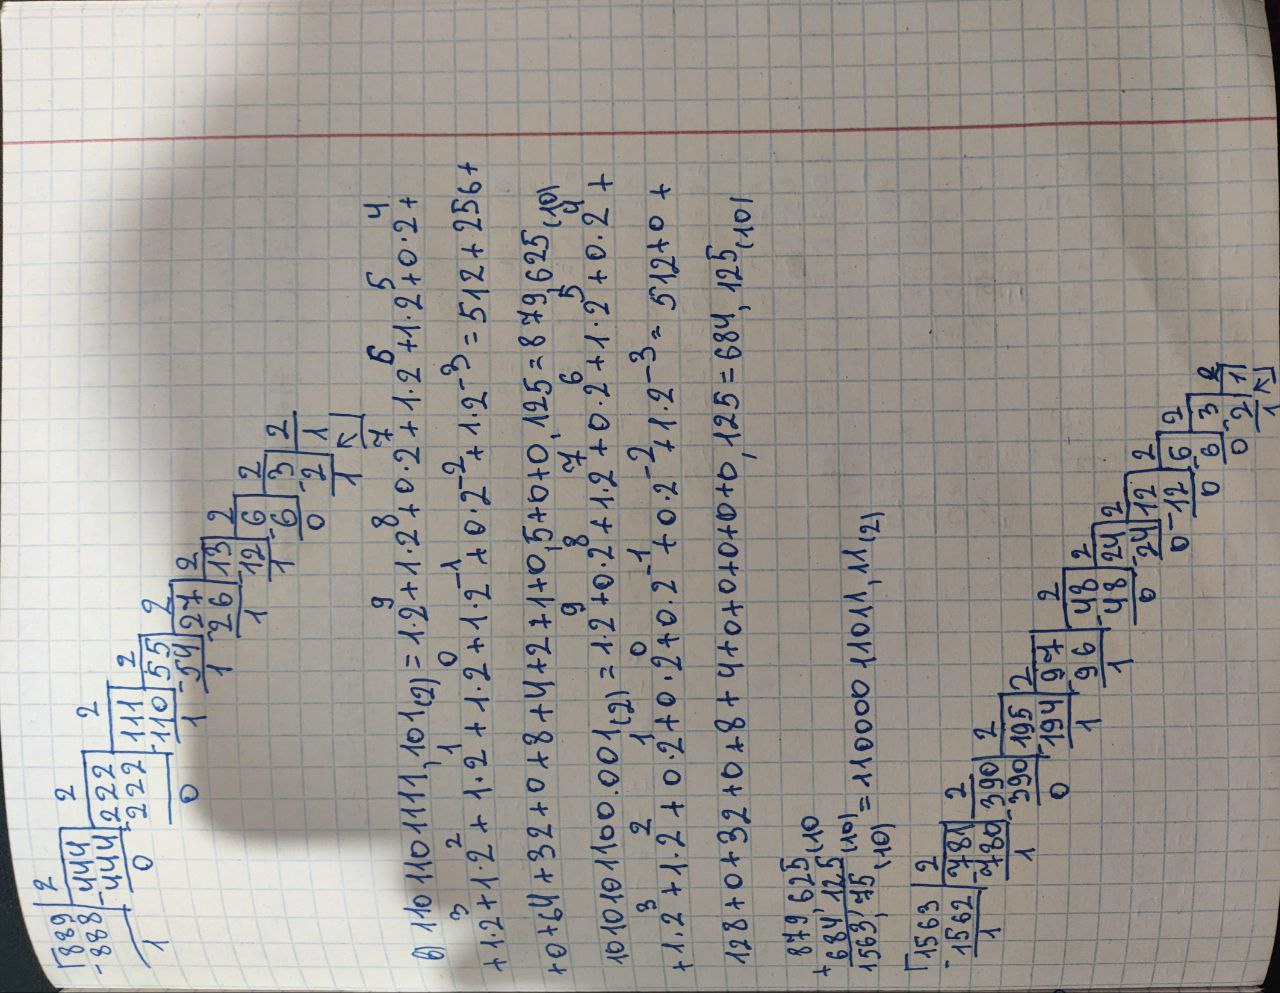 889 2
-888 444 2
1 -444 222 2
0 -222 111 2
0 -110 55 2
1 -54 27 2
1 -26 13 2
1 -12 6 2
1 -6 3 2
0 -2 1
1
в) 1101101111,101(2) = 1·2⁹ + 1·2⁸ + 0·2⁷ + 1·2⁶ + 1·2⁵ + 0·2⁴ +
+ 1·2³ + 1·2² + 1·2¹ + 1·2⁰ + 1·2⁻¹ + 0·2⁻² + 1·2⁻³ = 512 + 256 +
+ 0 + 64 + 32 + 0 + 8 + 4 + 2 + 1 + 0,5 + 0 + 0,125 = 879,625(10)
1010101100.001(2) = 1·2⁹ + 0·2⁸ + 1·2⁷ + 0·2⁶ + 1·2⁵ + 0·2⁴ +
+ 1·2³ + 1·2² + 0·2¹ + 0·2⁰ + 0·2⁻¹ + 0·2⁻² + 1·2⁻³ = 512 + 0 +
128 + 0 + 32 + 0 + 8 + 4 + 0 + 0 + 0 + 0 + 0,125 = 684,125(10)
879,625(10
+ 684,125(10)
1563,75(10) = 11000011011,11(2)
1563 2
-1562 781 2
1 -780 390 2
1 -390 195 2
0 -194 97 2
1 -96 48 2
1 -48 24 2
0 -24 12 2
0 -12 6 2
0 -6 3 2
0 -2 1
1